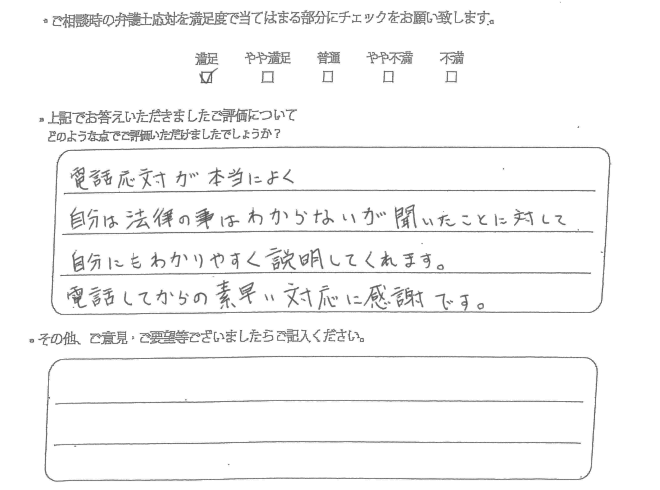 ・ご相談時の弁護士応対を満足度で当てはまる部分にチェックをお願い致します。
満足 やや満足 普通 やや不満 不満
☑ □ □ □ □
・上記でお答えいただきましたご評価について
どのような点でご評価いただけましたでしょうか？
電話応対が本当によく
自分は法律の事はわからないが聞いたことに対して
自分にもわかりやすく説明してくれます。
電話してからの素早い対応に感謝です。
・その他、ご意見・ご要望等ございましたらご記入ください。